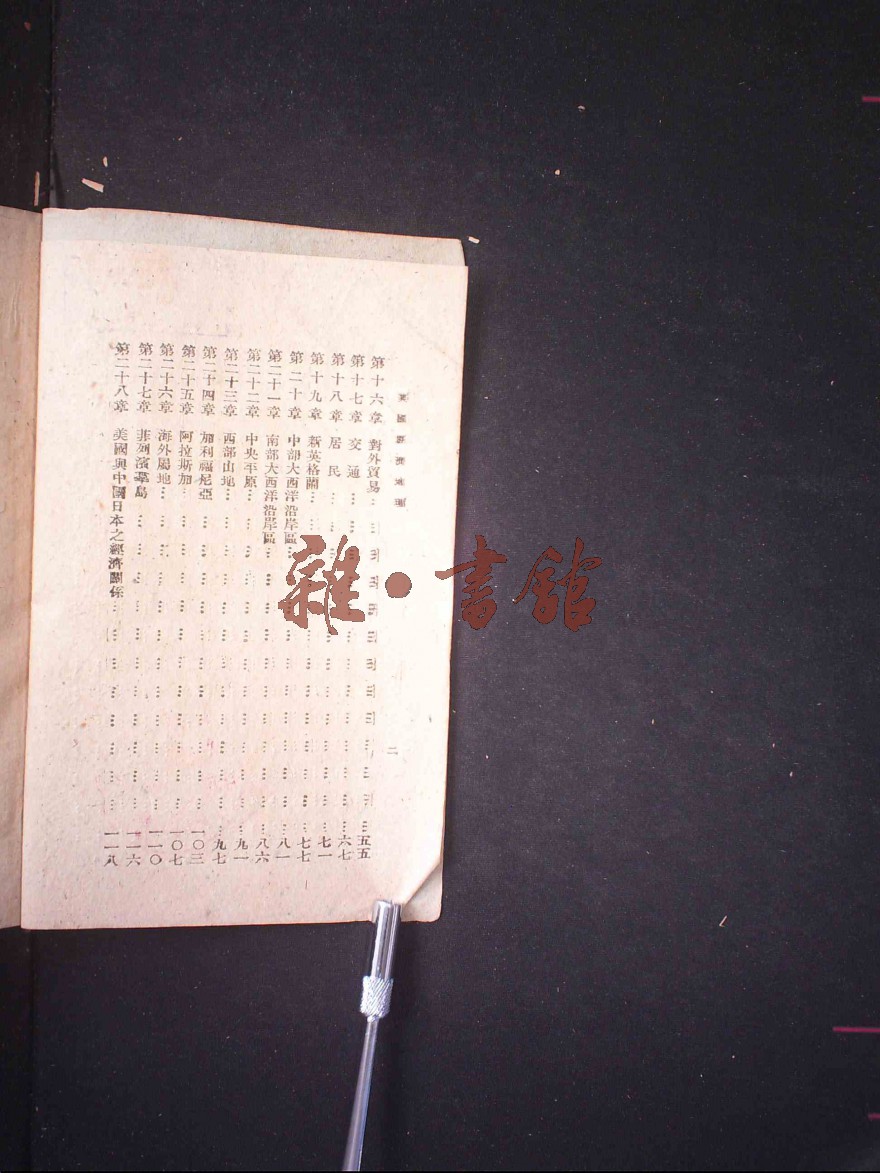 第十六章 對外貿易 五五
第十七章 交通 六七
第十八章 居民 七一
第十九章 新英格蘭 七七
第二十章 中部大西洋沿岸區 八一
第二十一章 南部大西洋沿岸區 八六
第二十二章 中央平原 九一
第二十三章 西部山地 九七
第二十四章 加利福尼亞 一〇三
第二十五章 阿拉斯加 一〇七
第二十六章 海外屬地 一一〇
第二十七章 菲列濱羣島 一一六
第二十八章 美國與中國日本之經濟關係 一一八
二
雜·書館